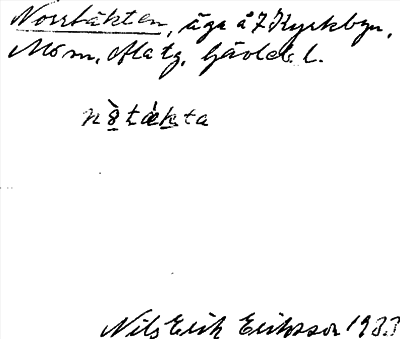 Norrtäkten, äga å 7 Kyrkbyn,
Mo sn, Ala tg, Gävleb l.
nò̱tæ̀kta
Nils Erik Eriksson 1933